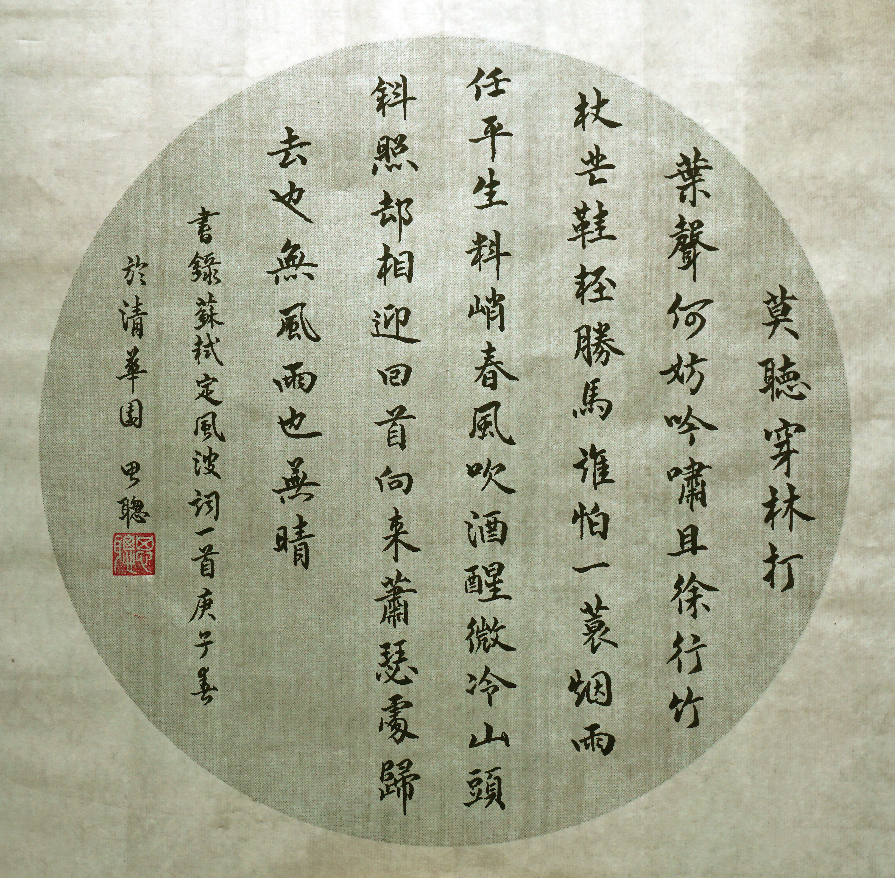 莫聴穿林打
葉聲何妨吟嘯且徐行竹
杖芒鞋輕勝馬誰怕一蓑烟雨
任平生料峭春風吹酒醒微冷山頭
斜照却相迎回首向来蕭瑟處歸
去也無風雨也無晴
書錄蘇軾定風波詞一首庚子春
於清華園思聰
思聰